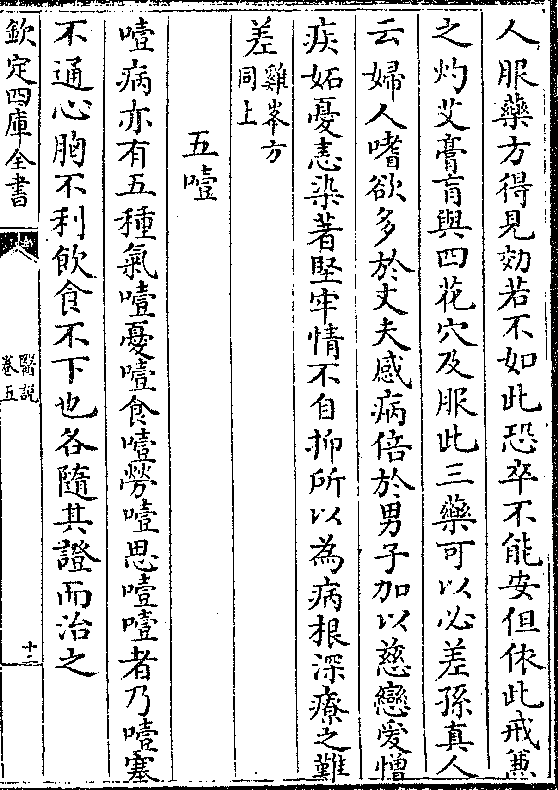 人服藥方得見効若不如此恐卒不能安但依此戒兼
之灼艾膏肓與四花穴及服此三藥可以必差孫真人
云婦人嗜欲多於丈夫感病倍於男子加以慈戀愛憎
疾妬憂恚染著堅牢情不自抑所以為病根深療之難
差雞峯方同上
五噎
噎病亦有五種氣噎憂噎食噎勞噎思噎噎者乃噎塞
不通心胸不利飲食不下也各隨其證而治之
欽定四庫全書
醫説
卷五
十二